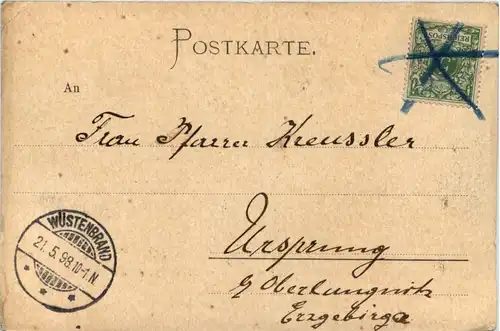 POSTKARTE.
REICHSPOST
An
Frau Pfarrer Kreussler
WÜSTENBRAND
21.5.98.10-1.N.
Ursprung
b/ Oberlungwitz
Erzgebirge